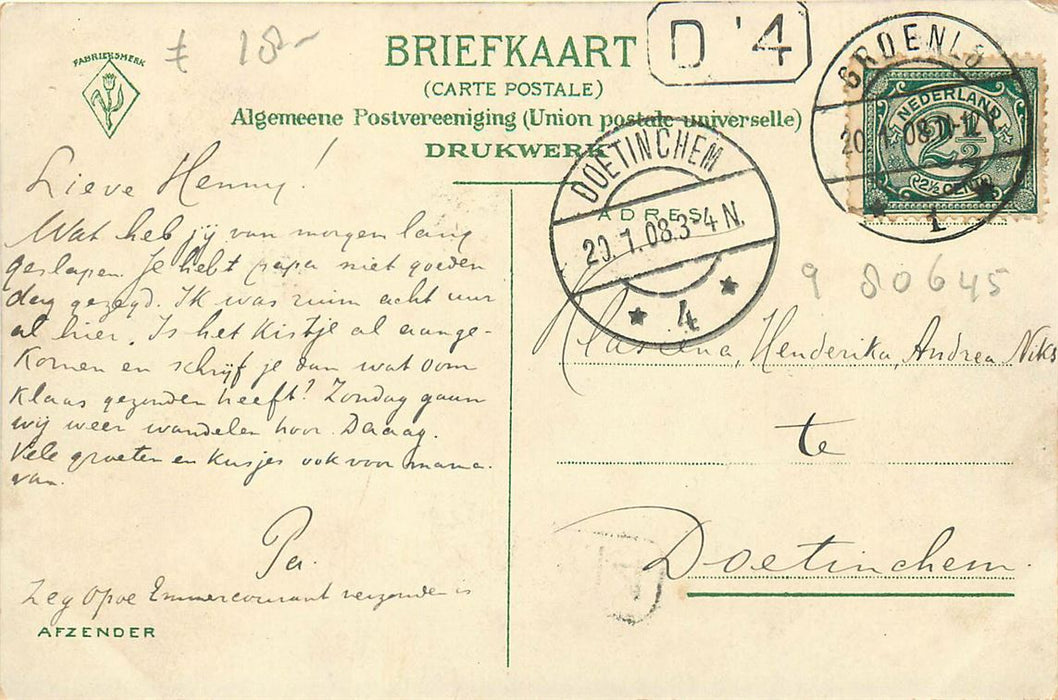 FABRIEKSMERK
£ 18-
BRIEFKAART
(CARTE POSTALE)
Algemeene Postvereeniging (Union postale universelle)
DRUKWERK
D '4
GROENLO
20. 1. 08 11-12
1
NEDERLAND
2½
2½ CENT
DOETINCHEM
20. 1. 08. 3-4 N.
4
ADRES
9 80645
Lieve Henny!
Wat heb jy van morgen lang
geslapen. Je hebt papa niet goeden
dag gezegd. Ik was ruim acht uur
al hier. Is het kistje al aange-
komen en schrijf je dan wat oom
Klaas gezonden heeft? Zondag gaan
wij weer wandelen hoor. Daaag.
Vele groeten en kusjes ook voor mama.
van.
Pa.
Zeg Opoe Emmercourant verzonden is
AFZENDER
Klasena, Henderika, Andrea Niks
te
Doetinchem.